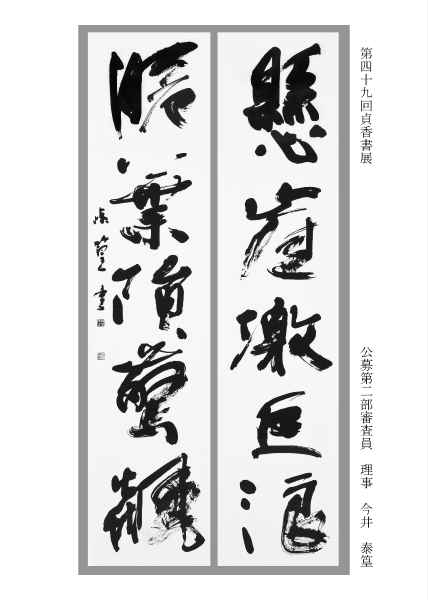 第四十九回貞香書展
公募第二部審査員 理事 今井 泰篁
懸崖激巨浪
脆葉隕驚飆
泰篁書